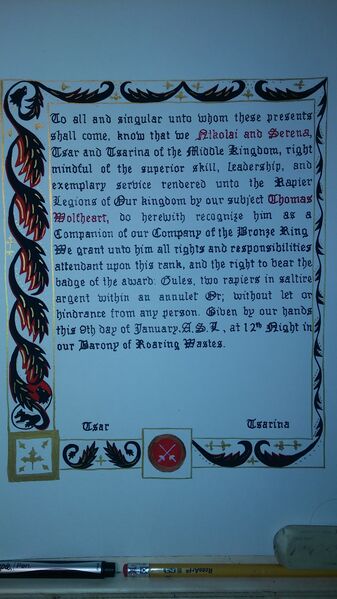 To all and singular unto whom these presents
shall come, know that we Nikolai and Serena,
Tsar and Tsarina of the Middle Kingdom, right
mindful of the superior skill, leadership, and
exemplary service rendered unto the Rapier
Legions of Our kingdom by our subject Thomas
Wolfheart, do herewith recognize him as a
Companion of our Company of the Bronze Ring
We grant unto him all rights and responsibilities
attendant upon this rank, and the right to bear the
badge of the award: Gules, two rapiers in saltire
argent within an annulet Or; without let or
hindrance from any person. Given by our hands
this 9th day of January, A.S. L, at 12th Night in
our Barony of Roaring Wastes.
Tsar Tsarina
Pen